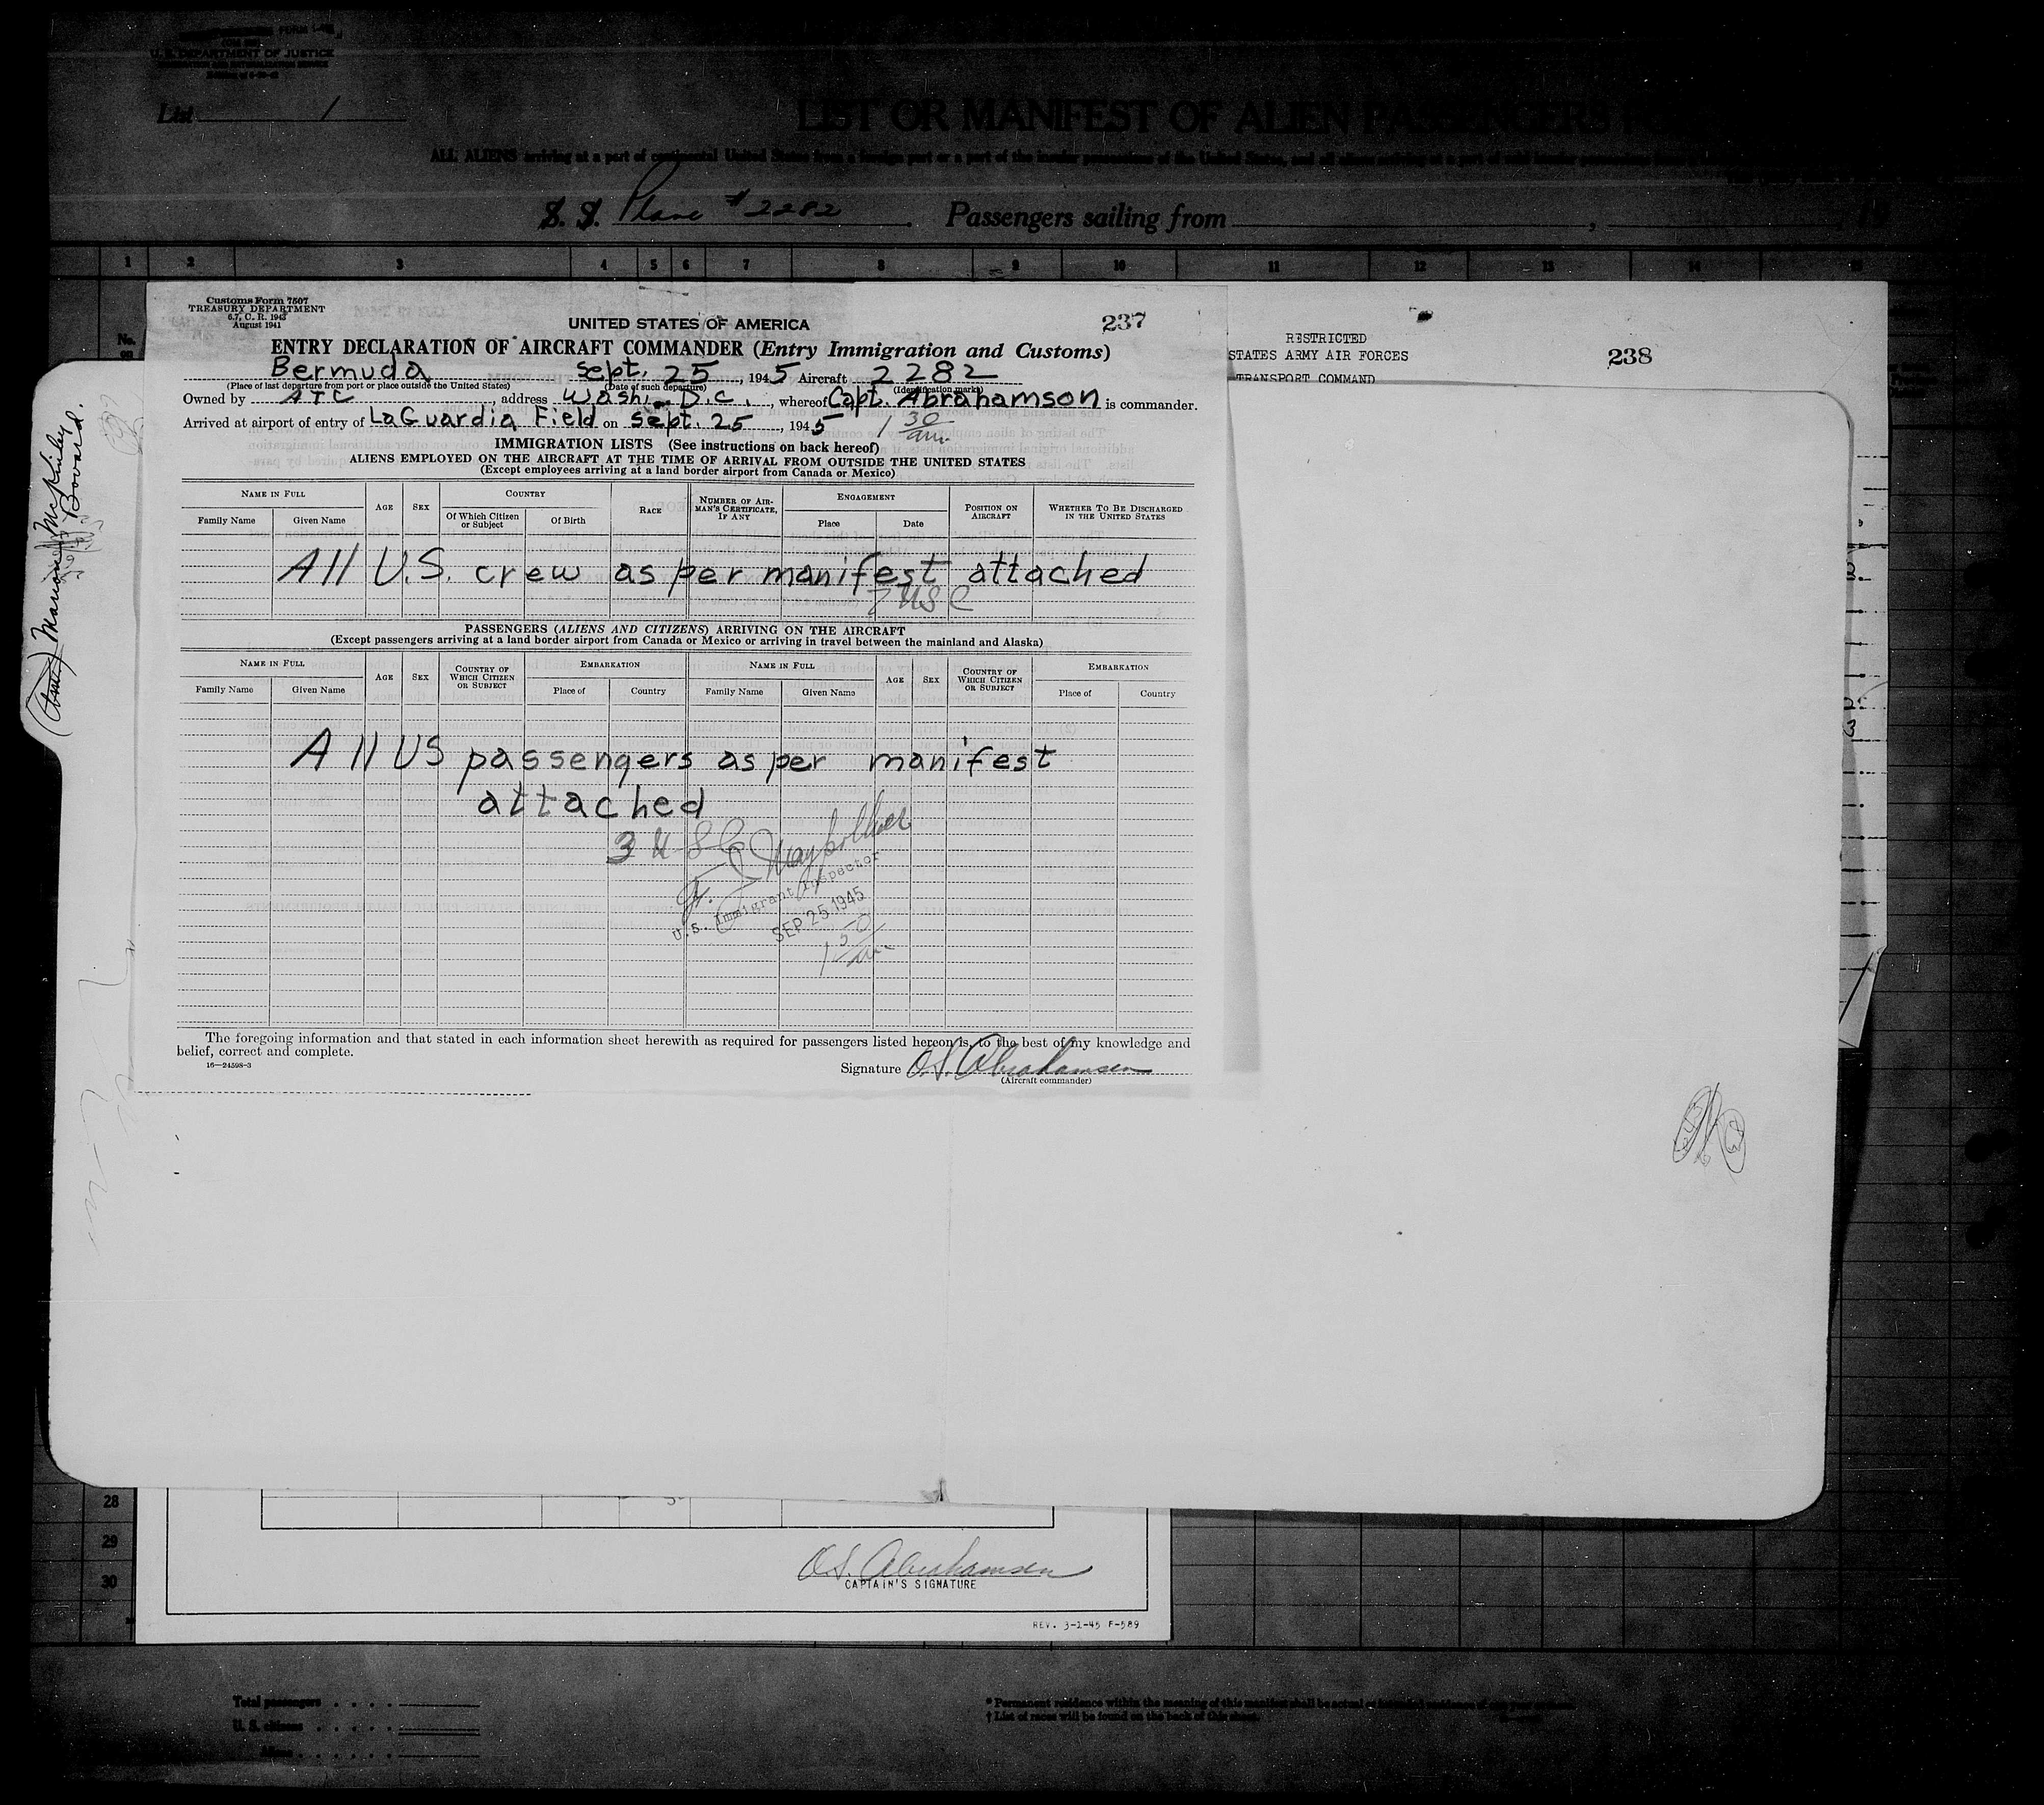 U.S. DEPARTMENT OF JUSTICE
List 1
LIST OR MANIFEST OF ALIEN PASSENGERS
ALL ALIENS arriving at a port of continental United States from a foreign port or a port of the insular possessions of the United States, and all aliens arriving at a port of said insular possessions
S. S. Plane # 2282 Passengers sailing from
1 2 3 4 5 6 7 8 9 10 11 12 13 14 15
Customs Form 7507
TREASURY DEPARTMENT
6.7, C. R. 1943
August 1941
UNITED STATES OF AMERICA
237
ENTRY DECLARATION OF AIRCRAFT COMMANDER (Entry Immigration and Customs)
Bermuda Sept. 25, 1945 Aircraft 2282
(Place of last departure from port or place outside the United States) (Date of such departure) (Identification marks)
Owned by ATC, address Wash. D.C., whereof Capt. Abrahamson is commander.
Arrived at airport of entry of LaGuardia Field on Sept. 25, 1945 1 30 am.
IMMIGRATION LISTS (See instructions on back hereof)
ALIENS EMPLOYED ON THE AIRCRAFT AT THE TIME OF ARRIVAL FROM OUTSIDE THE UNITED STATES
(Except employees arriving at a land border airport from Canada or Mexico)
NAME IN FULL AGE SEX COUNTRY RACE NUMBER OF AIRMAN'S CERTIFICATE, IF ANY ENGAGEMENT POSITION ON AIRCRAFT WHETHER TO BE DISCHARGED IN THE UNITED STATES
Family Name Given Name Of Which Citizen or Subject Of Birth Place Date
All U.S. crew as per manifest attached
7 USC
PASSENGERS (ALIENS AND CITIZENS) ARRIVING ON THE AIRCRAFT
(Except passengers arriving at a land border airport from Canada or Mexico or arriving in travel between the mainland and Alaska)
NAME IN FULL AGE SEX COUNTRY OF WHICH CITIZEN OR SUBJECT EMBARKATION NAME IN FULL AGE SEX COUNTRY OF WHICH CITIZEN OR SUBJECT EMBARKATION
Family Name Given Name Place of Country Family Name Given Name Place of Country
All US passengers as per manifest
attached
3 USC
U.S. Immigrant Inspector
SEP 25 1945
1 50 am
The foregoing information and that stated in each information sheet herewith as required for passengers listed hereon is, to the best of my knowledge and
belief, correct and complete.
16—24598-3
Signature O.S. Abrahamsen
(Aircraft commander)
RESTRICTED
STATES ARMY AIR FORCES
TRANSPORT COMMAND
238
Marion McKinley
Bovard.
28
29
30
O.S. Abrahamsen
CAPTAIN'S SIGNATURE
REV. 3-2-45 F-589
Total passengers
U. S. citizens
Aliens
* Permanent residence within the meaning of this manifest shall be actual or intended residence of one year or more.
† List of races will be found on the back of this sheet.